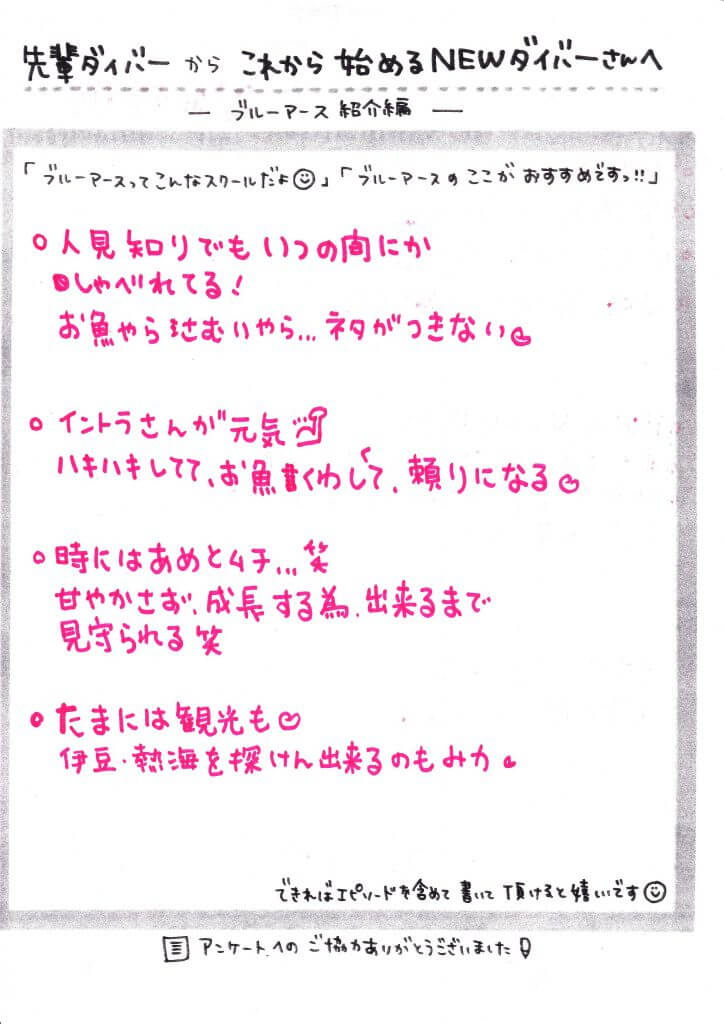 先輩ダイバーから これから始めるNEWダイバーさんへ
― ブルーアース紹介編 ―
「ブルーアースってこんなスクールだよ☺」「ブルーアースのここがおすすめですっ!!」
○人見知りでもいつの間にか
しゃべれてる!
お魚やら沈むいやら...ネタがつきない
○イントラさんが元気
ハキハキしてて、お魚くわしくて、頼りになる
○時にはあめとムチ...笑
甘やかさず、成長する為、出来るまで
見守られる笑
○たまには観光も
伊豆・熱海を探けん出来るのもみ力
できればエピソードを含めて書いて頂けると嬉しいです☺
アンケートへのご協力ありがとうございました